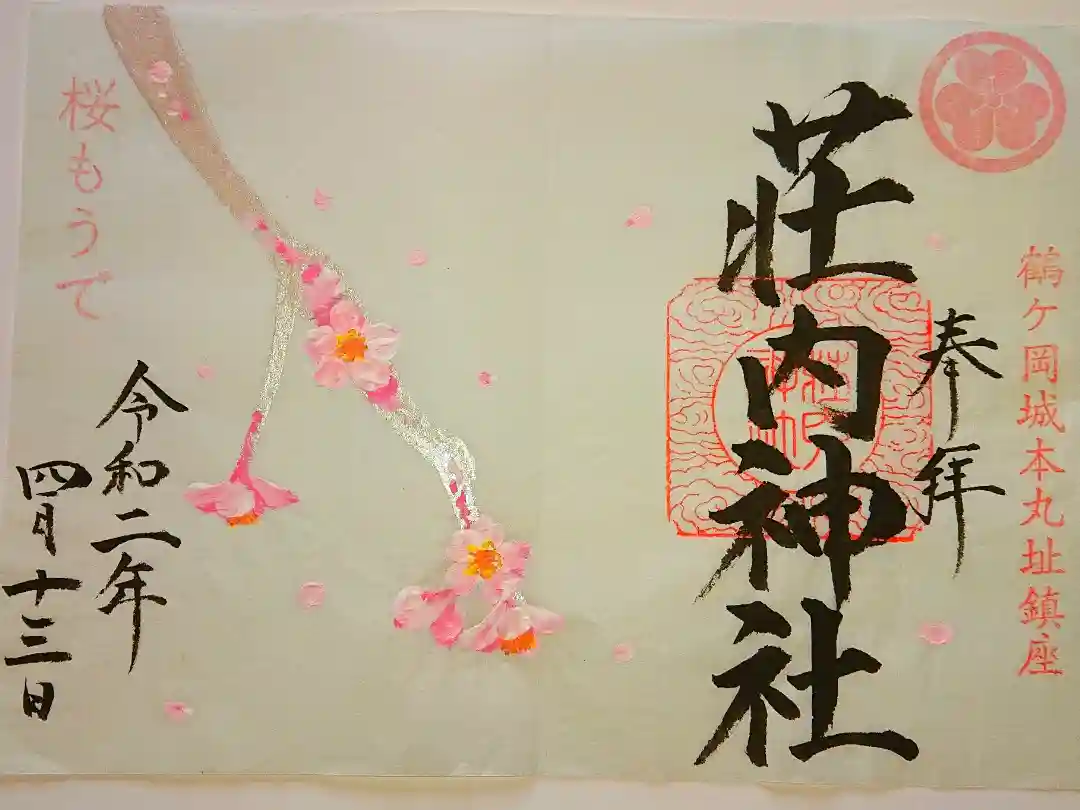 鶴ヶ岡城本丸址鎮座
奉拝
荘内神社
桜もうで
令和二年
四月十三日